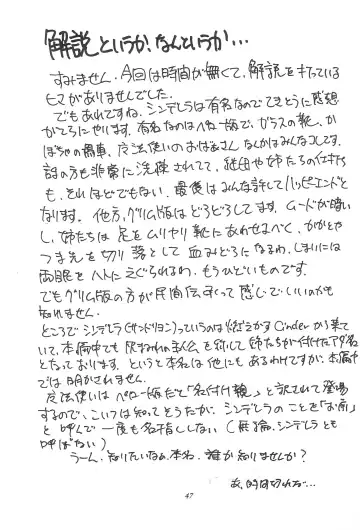 解説というか、なんというか…
すみません、今回は時間が無くて、解説を打っている
ヒマがありませんでした。
でもあれですね、シンデレラは有名なのでてきとうに感想
がてらにやります。有名なのはペロー版で、ガラスの靴、か
ぼちゃの馬車、魔法使いのおばあさんなんかはみんなコレです。
話の方も非常に洗練されてて、継母や姉たちの仕打ち
も、それほどでもない。最後はみんな許してハッピーエンドと
なります。他方、グリム版はどろどろしてます。ムードが暗い
し、姉たちは足をムリヤリ靴にあわせるべく、かかとや
つま先を切り落として血みどろになるわ、しまいには
両眼をハトにえぐられるわ、もうひどいものです。
でもグリム版の方が民間伝承って感じでいいのかも
知れません。
ところでシンデレラ(サンドリヨン)っていうのは燃えかすCinderから来て
いて、本編中でも灰まみれの を して姉たちが付けたアダ名
となっております。というと本名は他にもあるわけですが、本編中
では明かされません。
魔法使いはペロー版だと「名付け親」と訳されて登場
するので、こいつは知ってそうだが、シンデレラのことを「お前」
と呼んで一度も名指ししない(無論、シンデレラとも
呼ばない)
うーん、知りたいなぁ、本名。誰か知りませんか?
あ、時間切れだ…
47